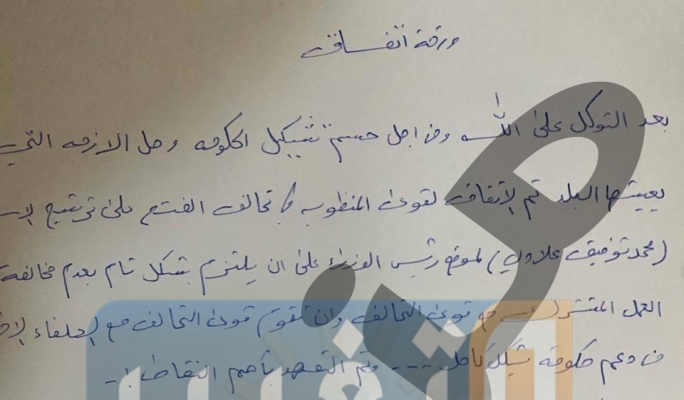 ورقة اتفاق
بعد التوكل على الله ومن اجل حسم تشكيل الحكومه وحل الازمه التي
يعيشها البلد تم الاتفاق لقوى المنظويه تحالف الفتح على ترشيح
(محمد توفيق علاوي) لموقع رئيس الوزراء على ان يلتزم بشكل تام بعدم مخالفة
العمل المشترك قوى التحالف وان تقوم قوى التحالف مع الحلفاء
من دعم حكومة بشكل كامل --- وتم التعهد بأهم النقاط :-